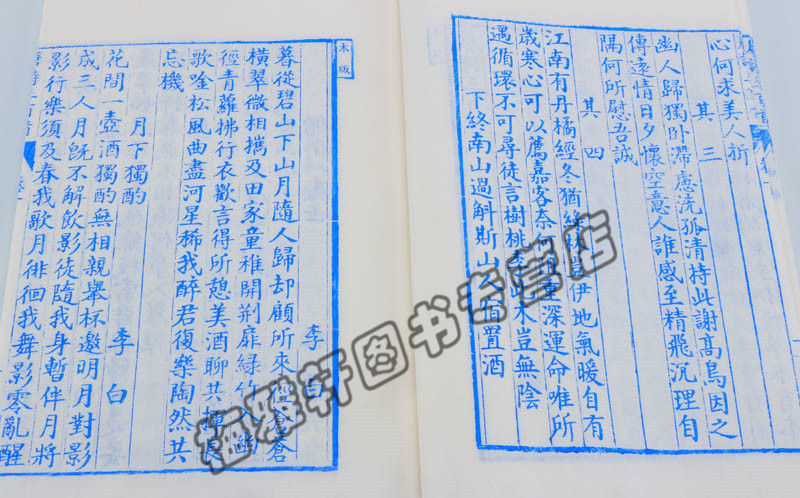 心何求美人折
其三
幽人歸獨卧滯慮洗孤清持此謝高鳥因之
傳遠情日夕懷空意人誰感至精飛沉理自
隔何所慰吾誠
其四
江南有丹橘經冬猶綠林豈伊地氣暖自有
歲寒心可以薦嘉客奈何阻重深運命唯所
遇循環不可尋徒言樹桃李此木豈無陰
下終南山過斛斯山人宿置酒
木版
李白
暮從碧山下山月隨人歸却顧所來徑蒼蒼
橫翠微相攜及田家童稚開荊扉綠竹入幽
徑青蘿拂行衣歡言得所憩美酒聊共揮長
歌唫松風曲盡河星稀我醉君復樂陶然共
忘機
月下獨酌
李白
花間一壺酒獨酌無相親舉杯邀明月對影
成三人月旣不解飲影徒隨我身暫伴月將
影行樂須及春我歌月徘徊我舞影零亂醒
轩图书专营店